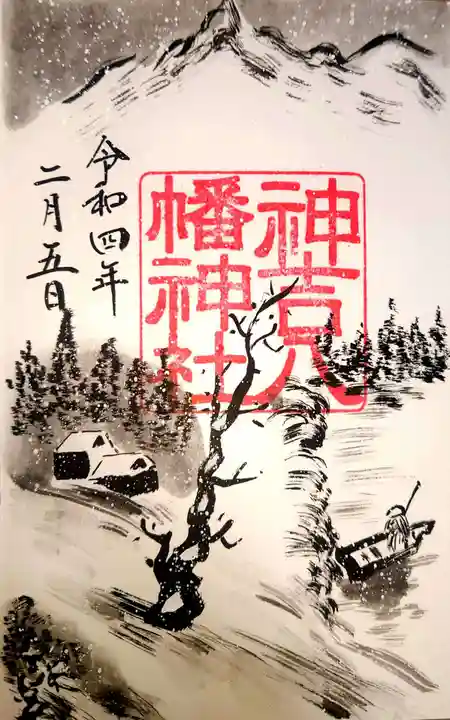 神吉八
幡神社
令和四年
二月五日